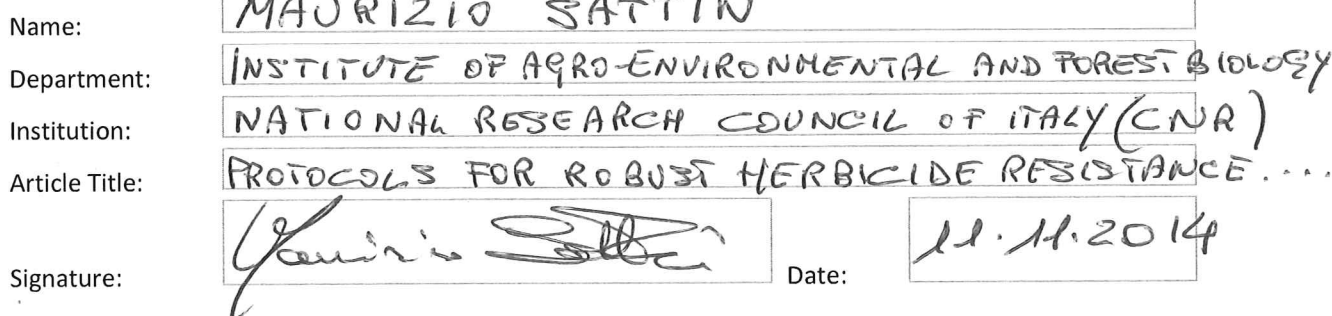 Name: MAURIZIO SATTIN
Department: INSTITUTE OF AGRO-ENVIRONMENTAL AND FOREST BIOLOGY
Institution: NATIONAL RESEARCH COUNCIL OF ITALY (CNR)
Article Title: PROTOCOLS FOR ROBUST HERBICIDE RESISTANCE....
Signature: Maurizio Sattin Date: 11.11.2014